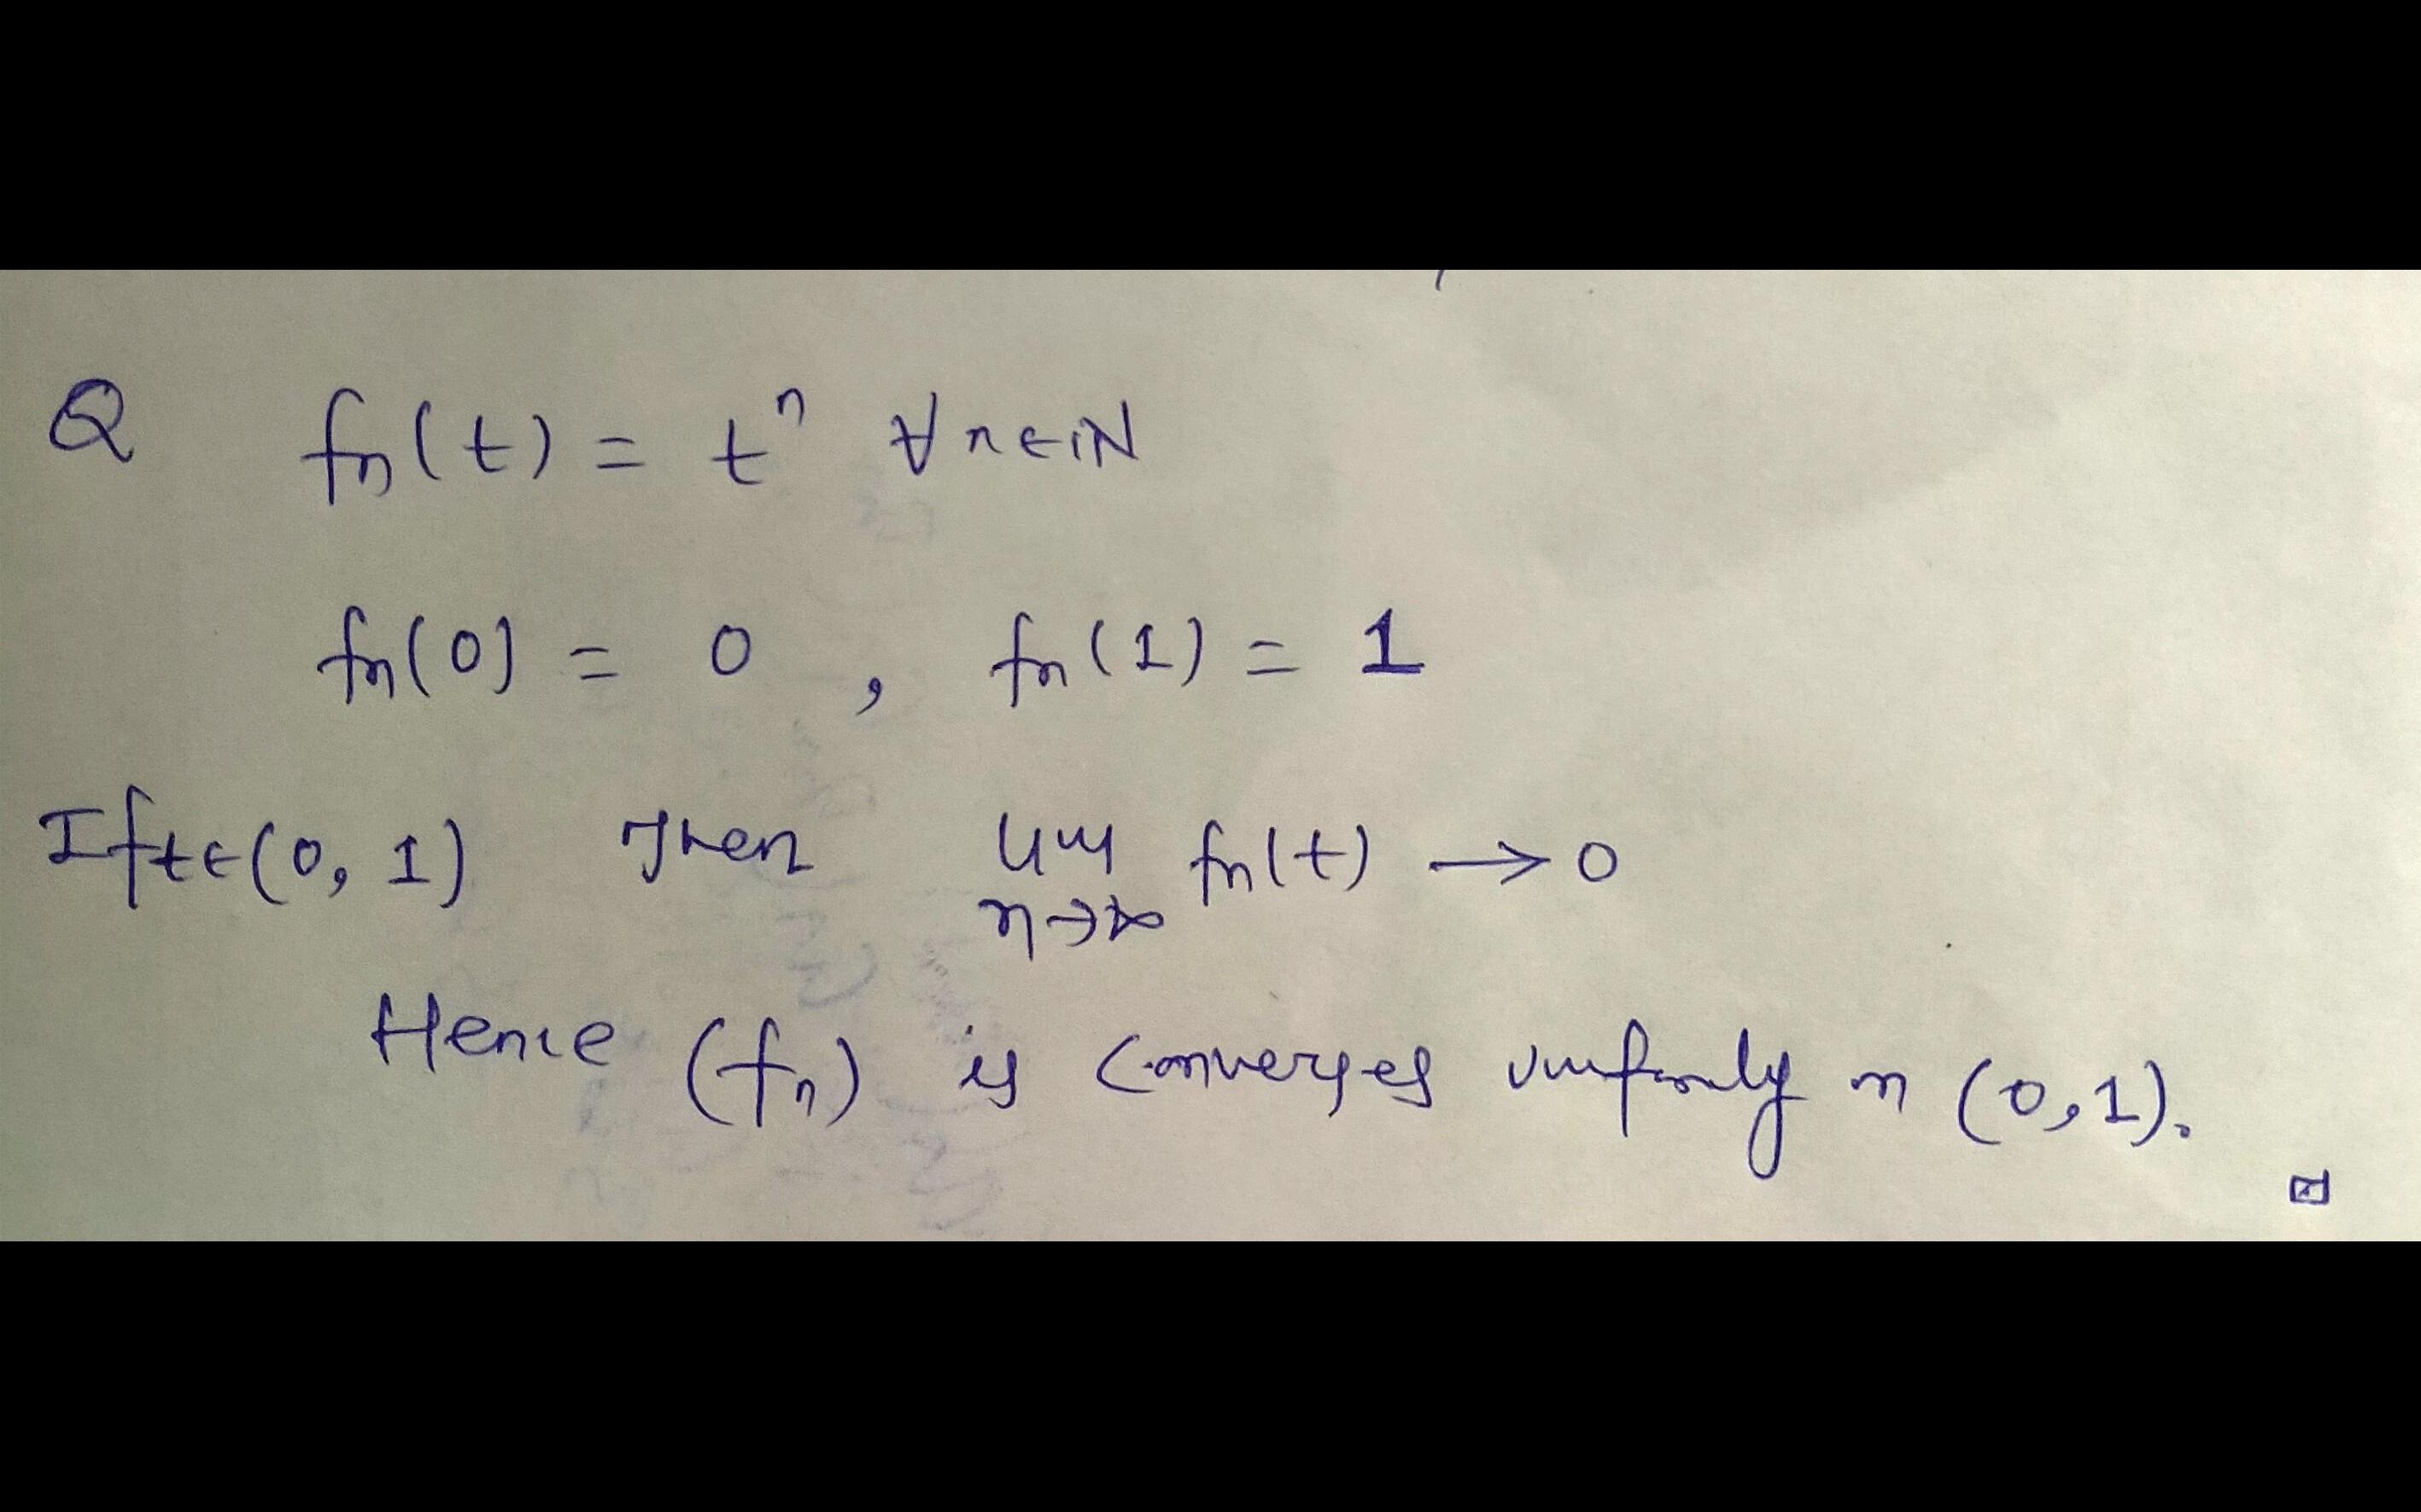 Q fn(t) = tⁿ ∀ n ∈ IN
fn(0) = 0 , fn(1) = 1
If t ∈ (0, 1) Then lim n→∞ fn(t) → 0
Hence (fn) is converges uniformly in (0,1).